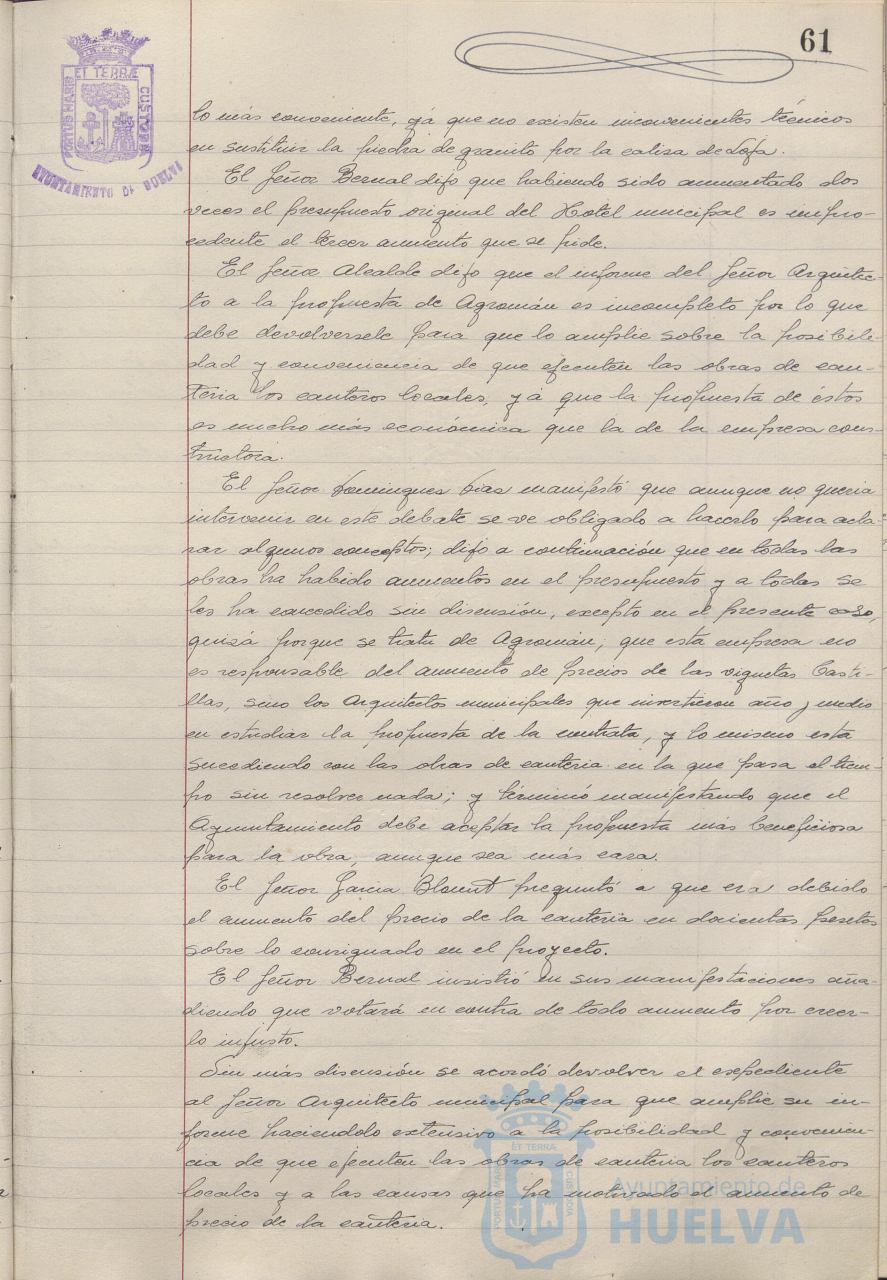 61
ET TERRÆ
PORTUS MARIS
CUSTODIA
AYUNTAMIENTO DE HUELVA
lo más conveniente, yá que no existen inconvenientes técnicos
en sustituir la piedra de granito por la caliza de Loja.
El Señor Bernal dijo que habiendo sido aumentado dos
veces el presupuesto original del Hotel municipal es impro-
cedente el tercer aumento que se pide.
El Señor Alcalde dijo que el informe del Señor Arquitec-
to a la propuesta de Agromán es incompleto por lo que
debe devolversele para que lo amplie sobre la posibili-
dad y conveniencia de que ejecuten las obras de can-
teria los canteros locales, yá que la propuesta de éstos
es mucho más económica que la de la empresa cons-
tructora.
El Señor Dominguez Dias manifestó que aunque no queria
intervenir en este debate se ve obligado a hacerlo para acla-
rar algunos conceptos; dijo a continuación que en todas las
obras ha habido aumentos en el presupuesto y a todas se
les ha concedido sin discusión, excepto en el presente caso,
quizá porque se trata de Agromán; que esta empresa no
es responsable del aumento de precios de las viguetas Casti-
llas, sino los Arquitectos municipales que invertieron año y medio
en estudiar la propuesta de la contrata, y lo mismo está
sucediendo con las obras de canteria en la que pasa el tiem-
po sin resolver nada; y terminó manifestando que el
Ayuntamiento debe aceptar la propuesta más beneficiosa
para la obra, aunque sea más cara.
El Señor Garcia Blount preguntó a que era debido
el aumento del precio de la canteria en docientas pesetas
sobre lo consignado en el proyecto.
El Señor Bernal insistió en sus manifestaciones aña-
diendo que votará en contra de todo aumento por creer-
lo injusto.
Sin más discusión se acordó devolver el expediente
al Señor Arquitecto municipal para que amplie su in-
forme haciendolo extensivo a la posibilidad y convenien-
cia de que ejecuten las obras de canteria los canteros
locales y a las causas que ha motivado el aumento de
precio de la canteria.
ET TERRÆ
PORTUS MARIS
CUSTODIA
Ayuntamiento de
HUELVA